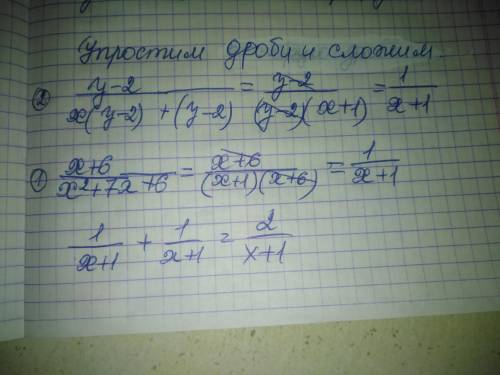 Упростим дроби и сложим.
② (y-2)/(x(y-2)+(y-2)) = (y-2)/((y-2)(x+1)) = 1/(x+1)
① (x+6)/(x²+7x+6) = (x+6)/((x+1)(x+6)) = 1/(x+1)
1/(x+1) + 1/(x+1) = 2/(x+1)